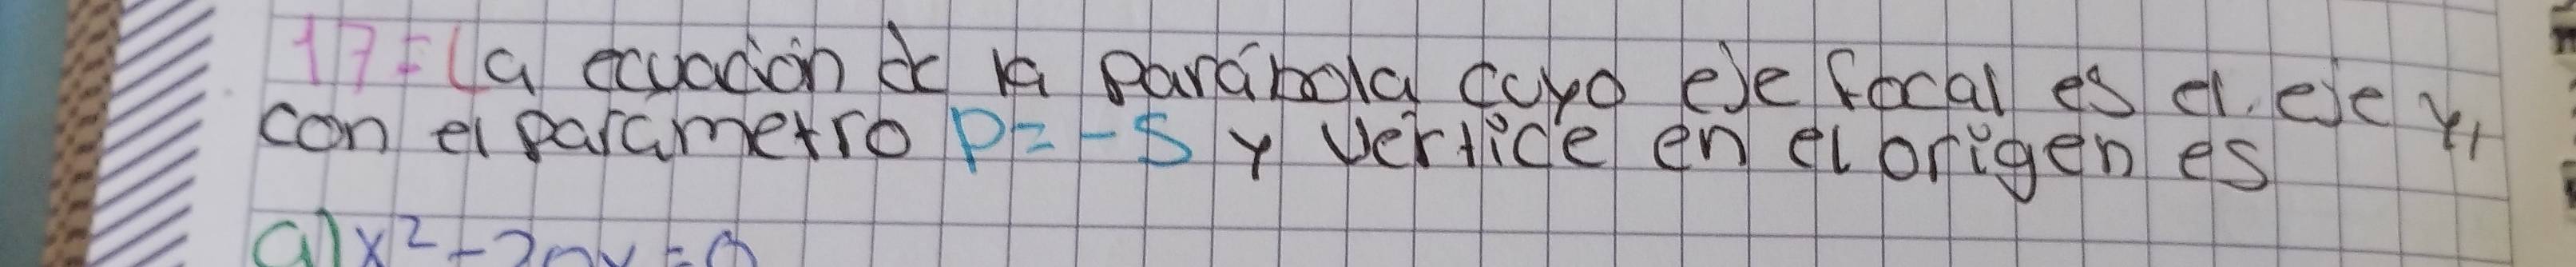 17=La ecuación de la parábola cuyo eje focal es el eje y,
con el parametro p=-5 y vertice en el origen es
a) x²-20y=0